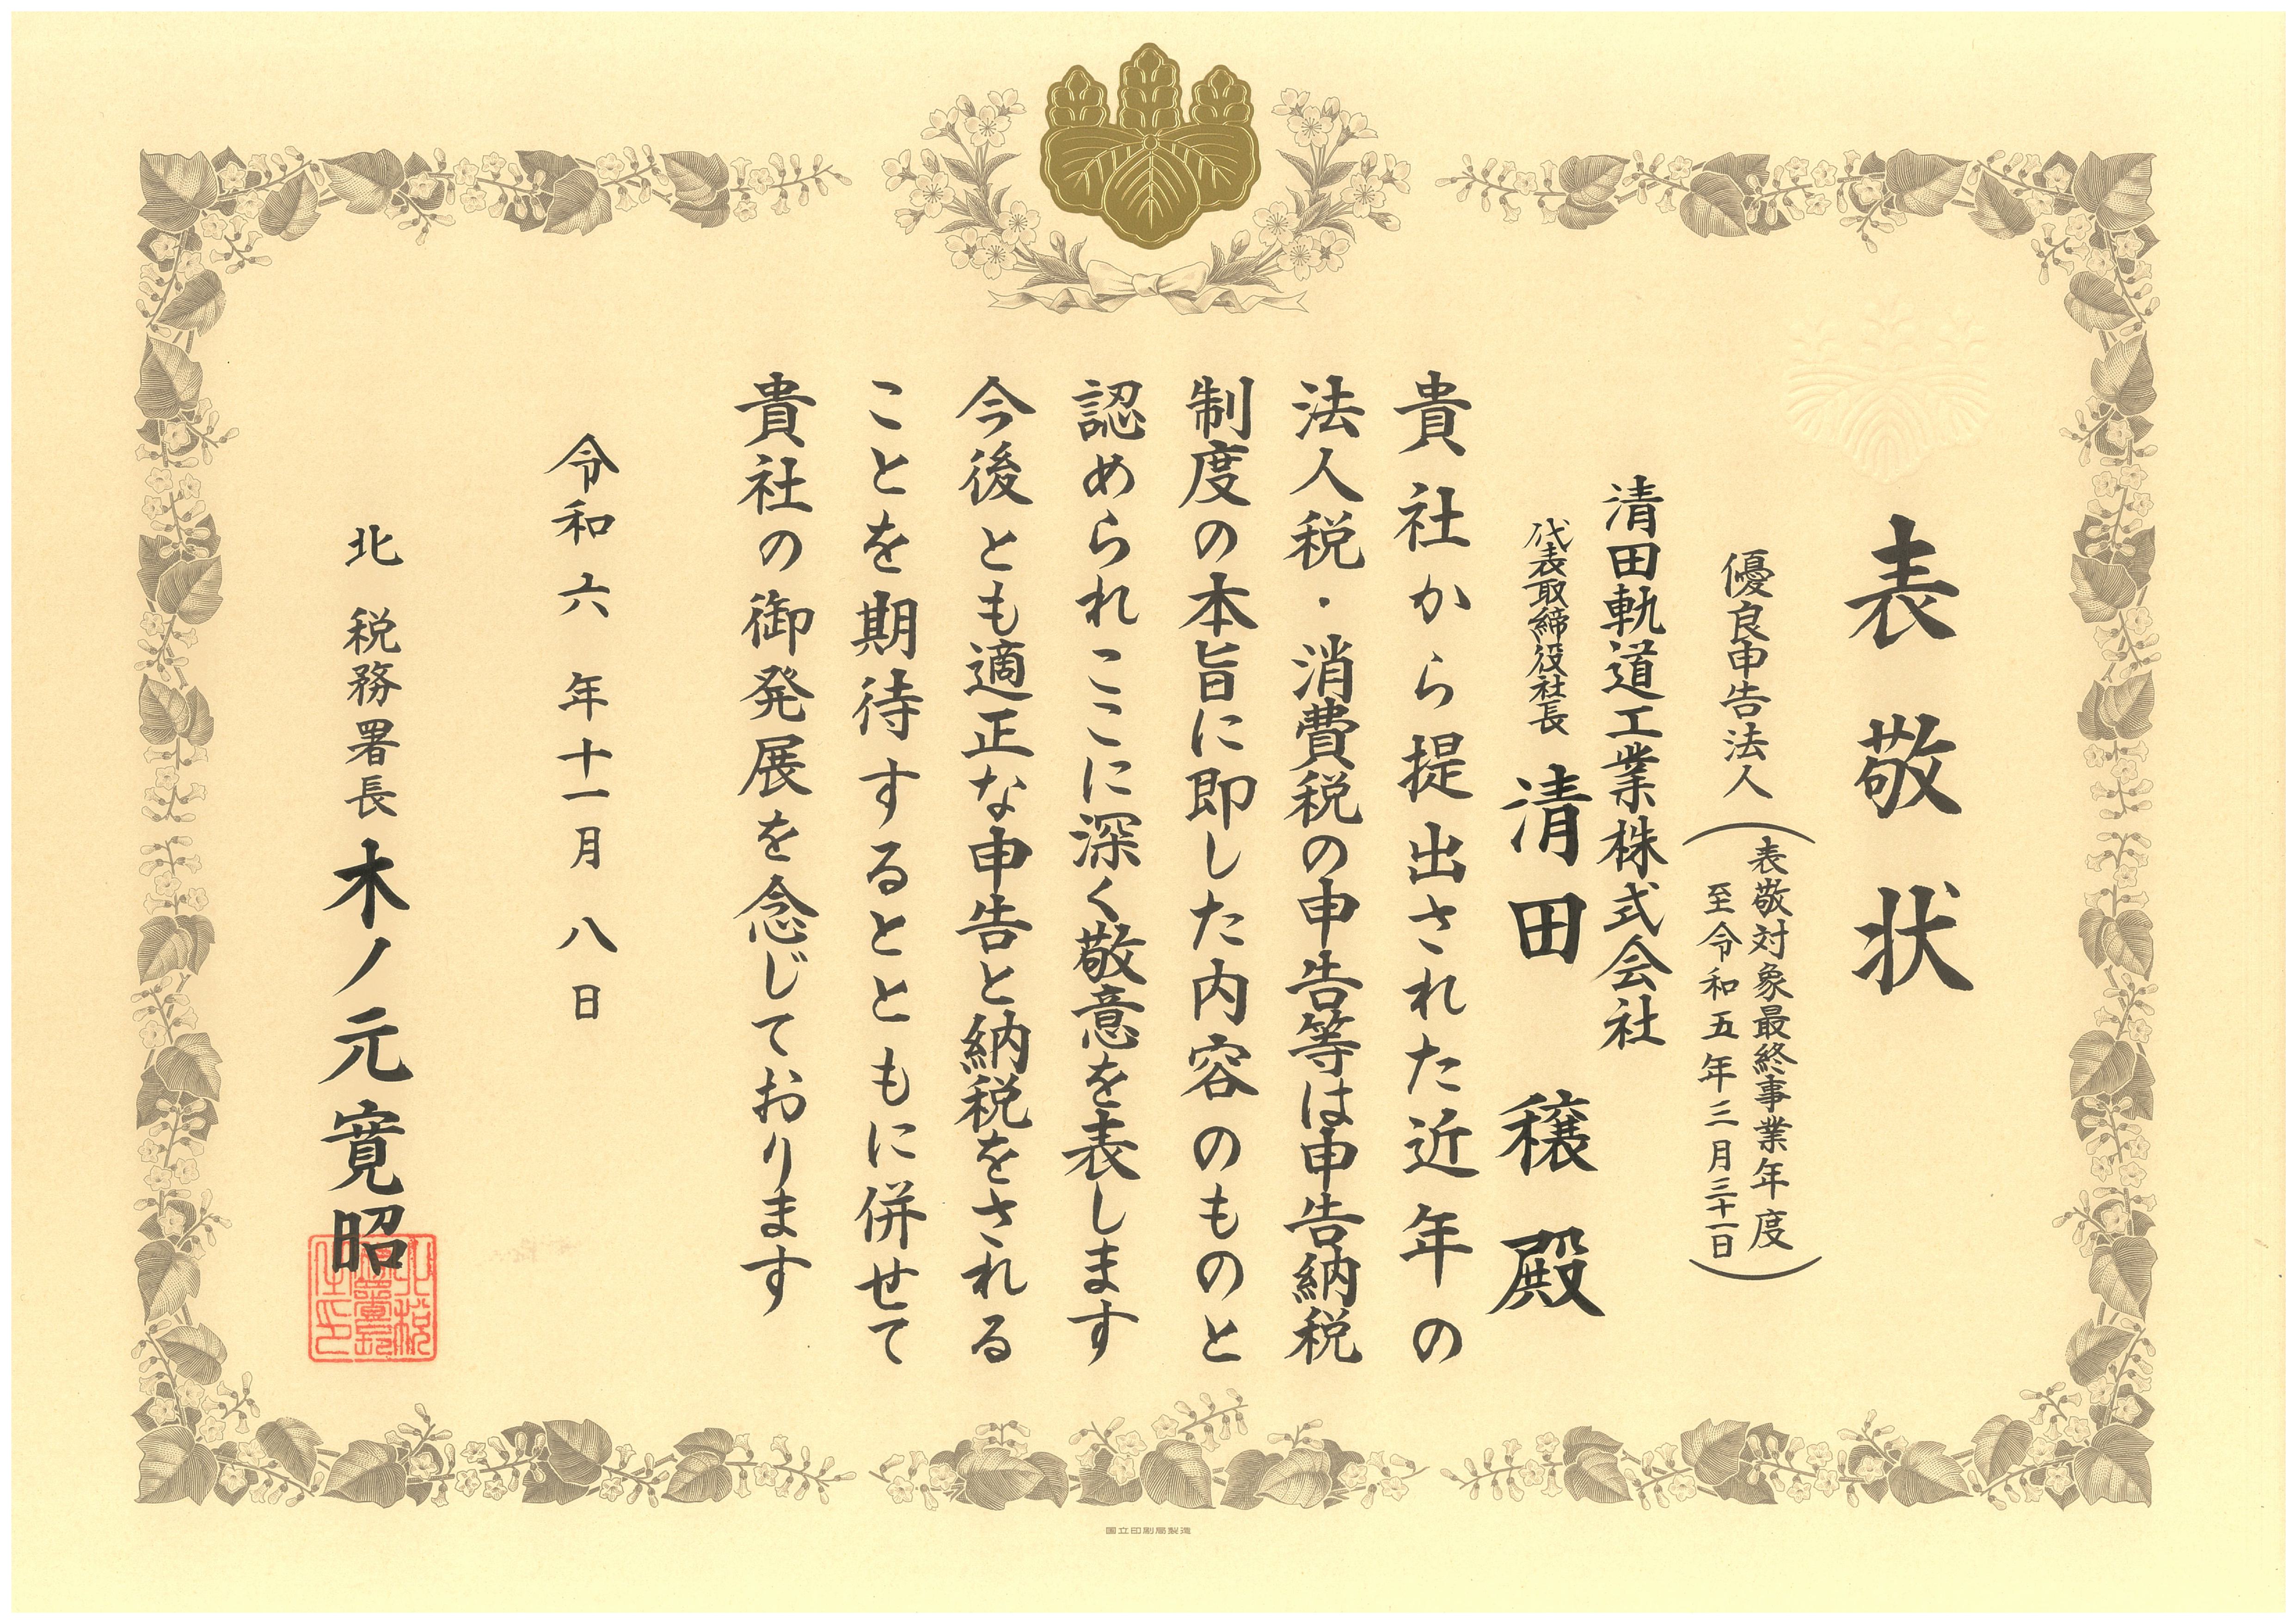 表敬状
優良申告法人
（表敬対象最終事業年度
至令和五年三月三十一日）
清田軌道工業株式会社
代表取締役社長 清田 穣 殿
貴社から提出された近年の
法人税・消費税の申告等は申告納税
制度の本旨に即した内容のものと
認められここに深く敬意を表します
今後とも適正な申告と納税をされる
ことを期待するとともに併せて
貴社の御発展を念じております
令和六年十一月八日
北税務署長 木ノ元寛昭
国立印刷局製造